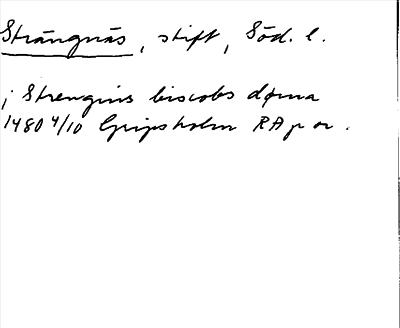 Strängnäs, stift, Söd. l.
i Strengins biscobs døma
1480 4/10 Gripsholm RA p or.